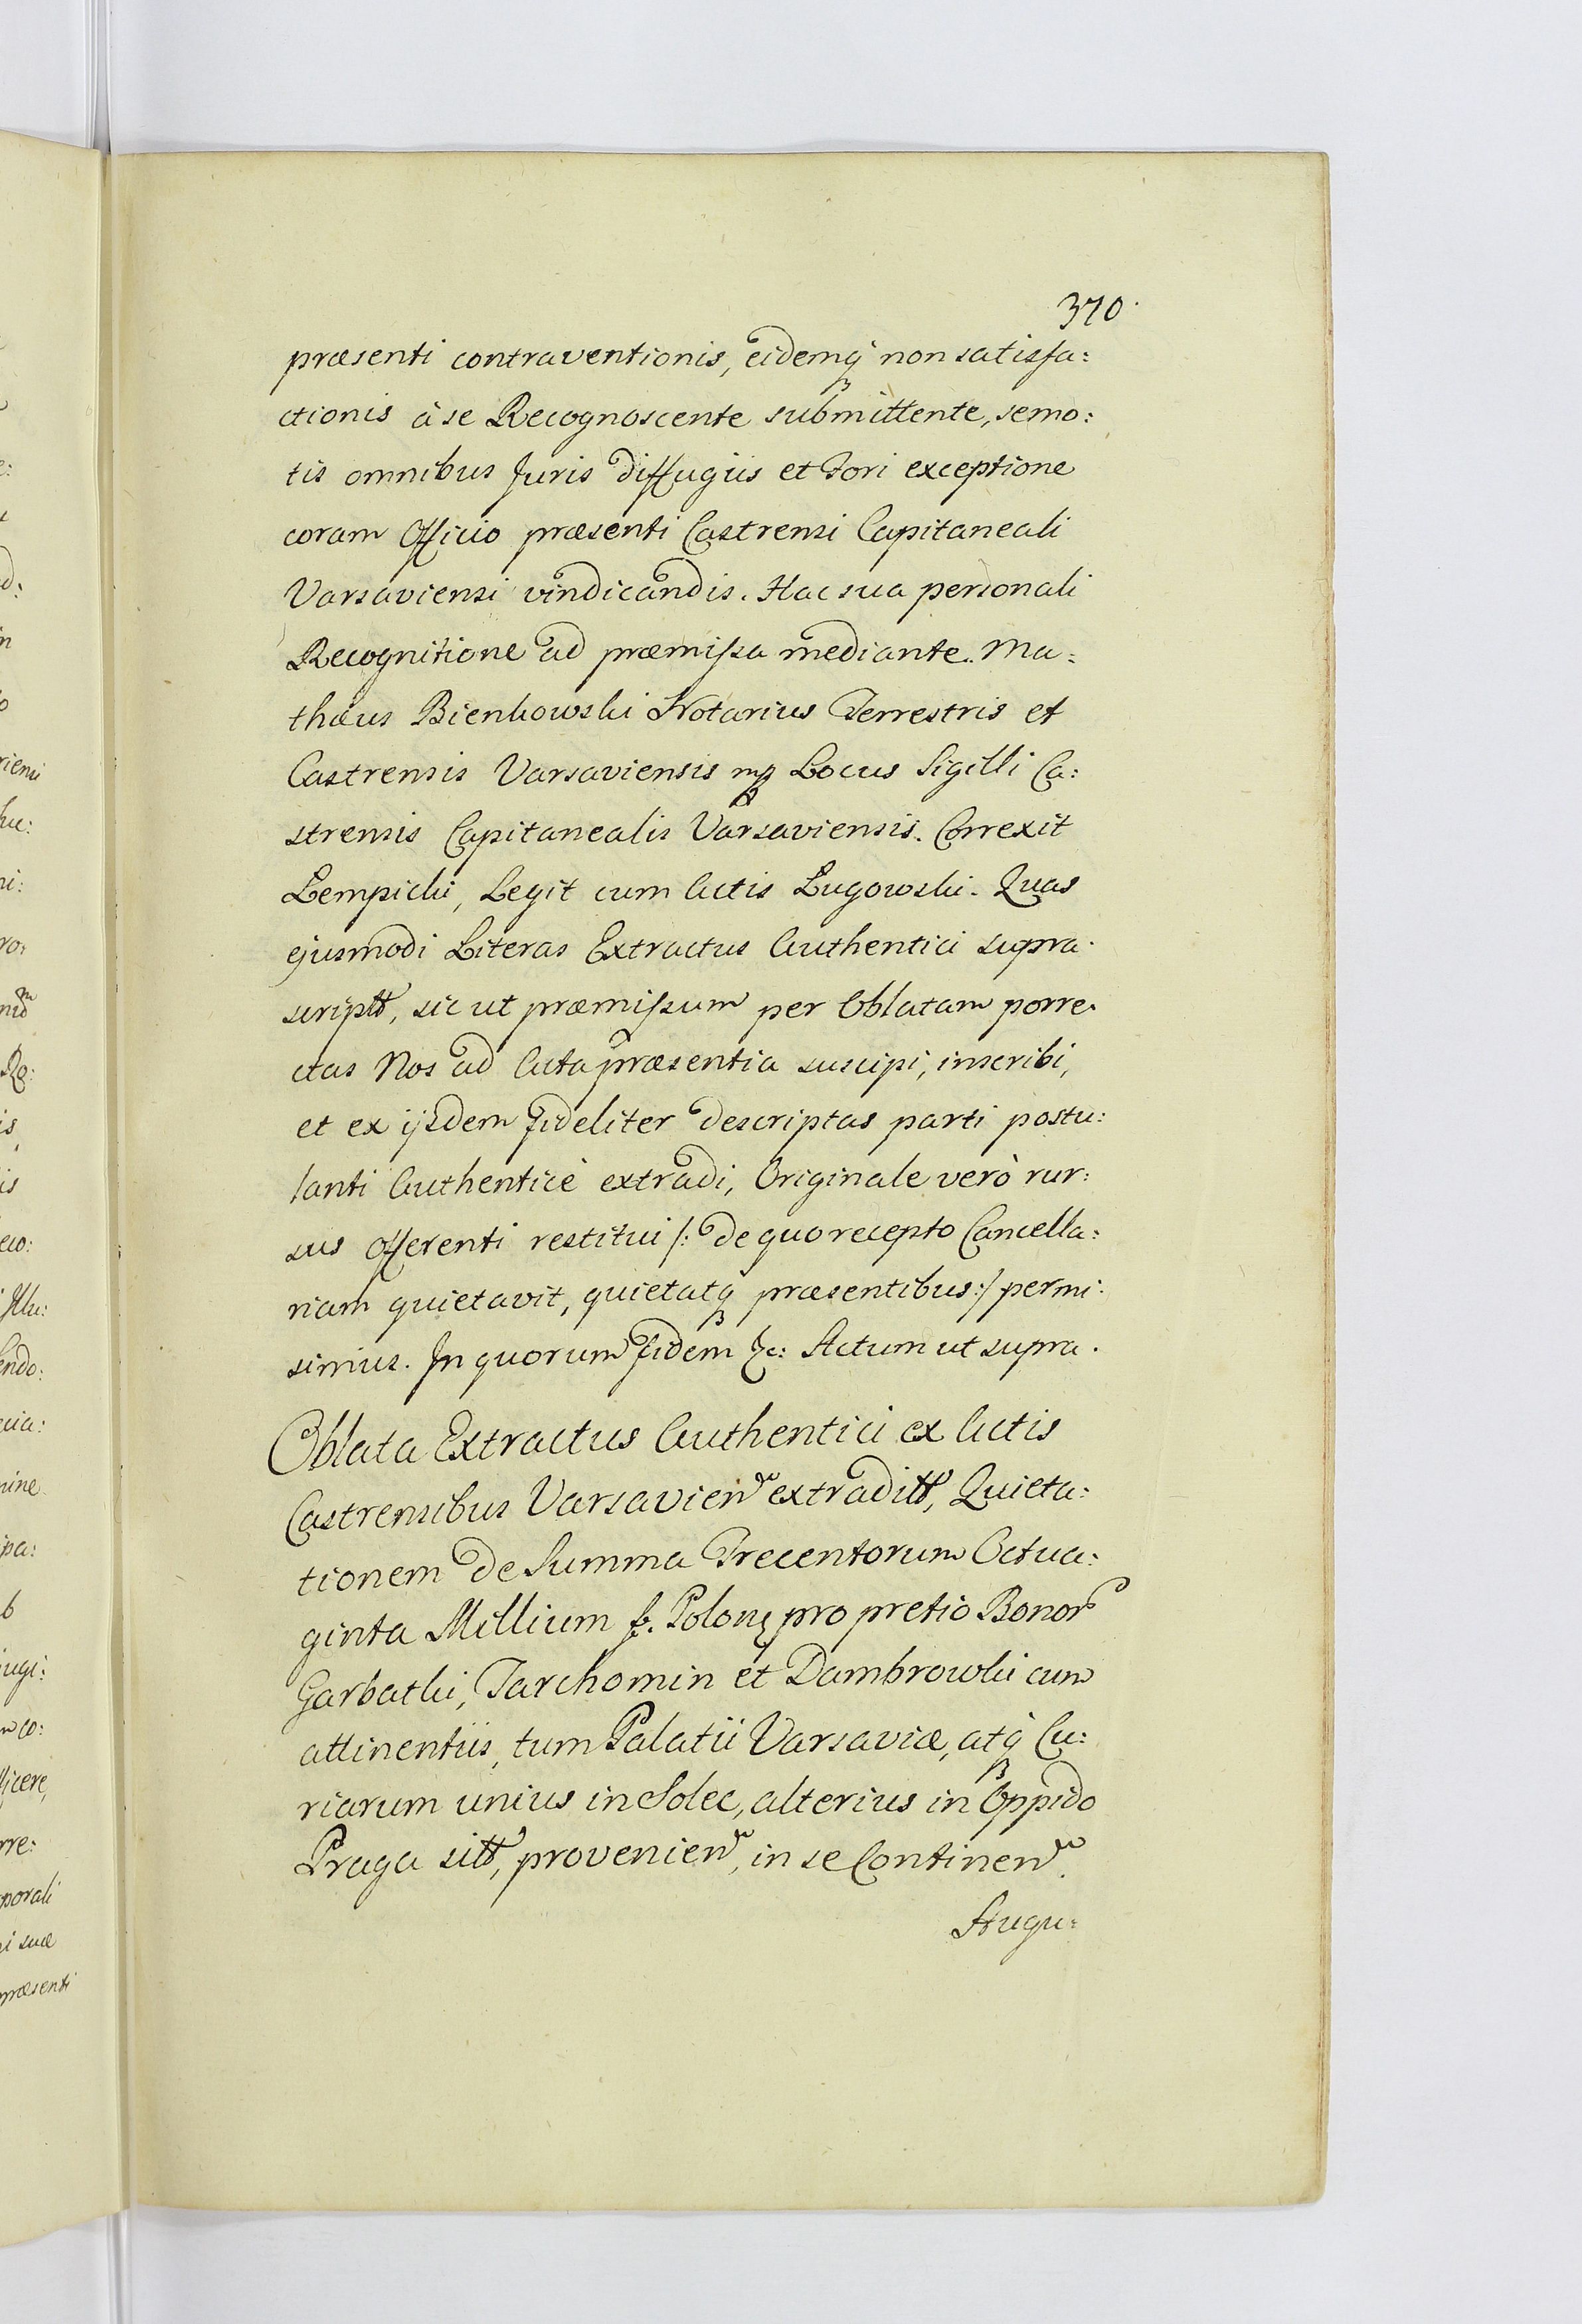 370.
præsenti contraventionis, eidemq́ non satisfa:
ctionis à se Recognoscente submittente, semo:
tis omnibus Juris diffugiis et Fori exceptione
coram Officio præsenti Castrensi Capitaneali
Varsaviensi vindicandis. Hac sua personali
Recognitione ad præmissa mediante. Ma:
thæus Bienkowski Notarius Terrestris et
Castrensis Varsaviensis mp Locus Sigilli Ca:
strensis Capitanealis Varsaviensis. Correxit
Lempicki, Legit cum Actis Lugowski. Quas
ejusmodi Literas Extractus Authentici supra.
scriptt, sic ut præmissum per Oblatam porre.
ctas Nos ad Acta præsentia suscipi, inscribi,
et ex ijsdem fideliter descriptas parti postu:
lanti Authenticè extradi, Originale verò rur:
sus offerenti restitui /: de quo recepto Cancella:
riam quietavit, quietatq præsentibus :/ permi:
simus. In quorum fidem &c: Actum ut supra.
Oblata Extractus Authentici ex Actis
Castrensibus Varsavien extraditt, Quieta:
tionem de Summa Trecentorum Octua:
ginta Millium f. Polon pro pretio Bonor
Garbatki, Tarchomin et Dambrowki cum
attinentiis, tum Palatii Varsaviæ, atq́ Cu:
riarum unius in Solec, alterius in Oppido
Praga sitt, provenien, in se Continen.
Augu:
riensi
præsenti